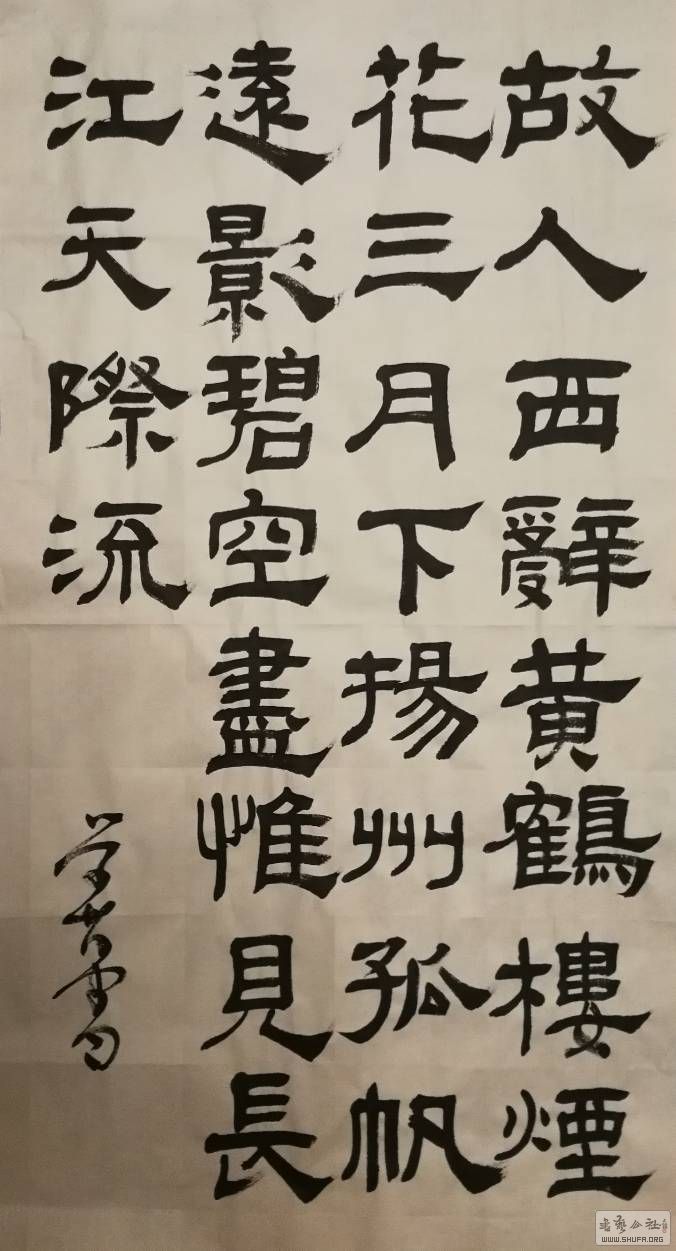 故人西辭黄鶴樓煙
花三月下揚州孤帆
遠影碧空盡惟見長
江天際流
书艺公社
WWW.SHUFA.ORG